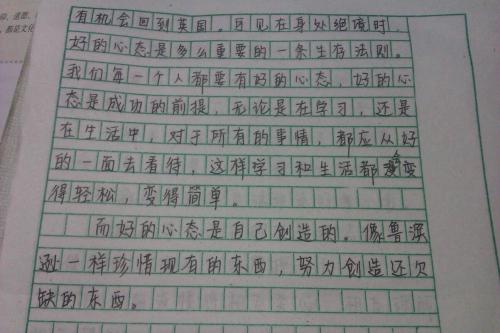 有机会回到英国。可见在身处绝境时，
好的心态是多么重要的一条生存法则。
我们每一个人都要有好的心态，好的心
态是成功的前提，无论是在学习，还是
在生活中，对于所有的事情，都应从好
的一面去看待，这样学习和生活都会变
得轻松，变得简单。
而好的心态是自己创造的。像鲁滨
逊一样珍惜现有的东西，努力创造还欠
缺的东西。